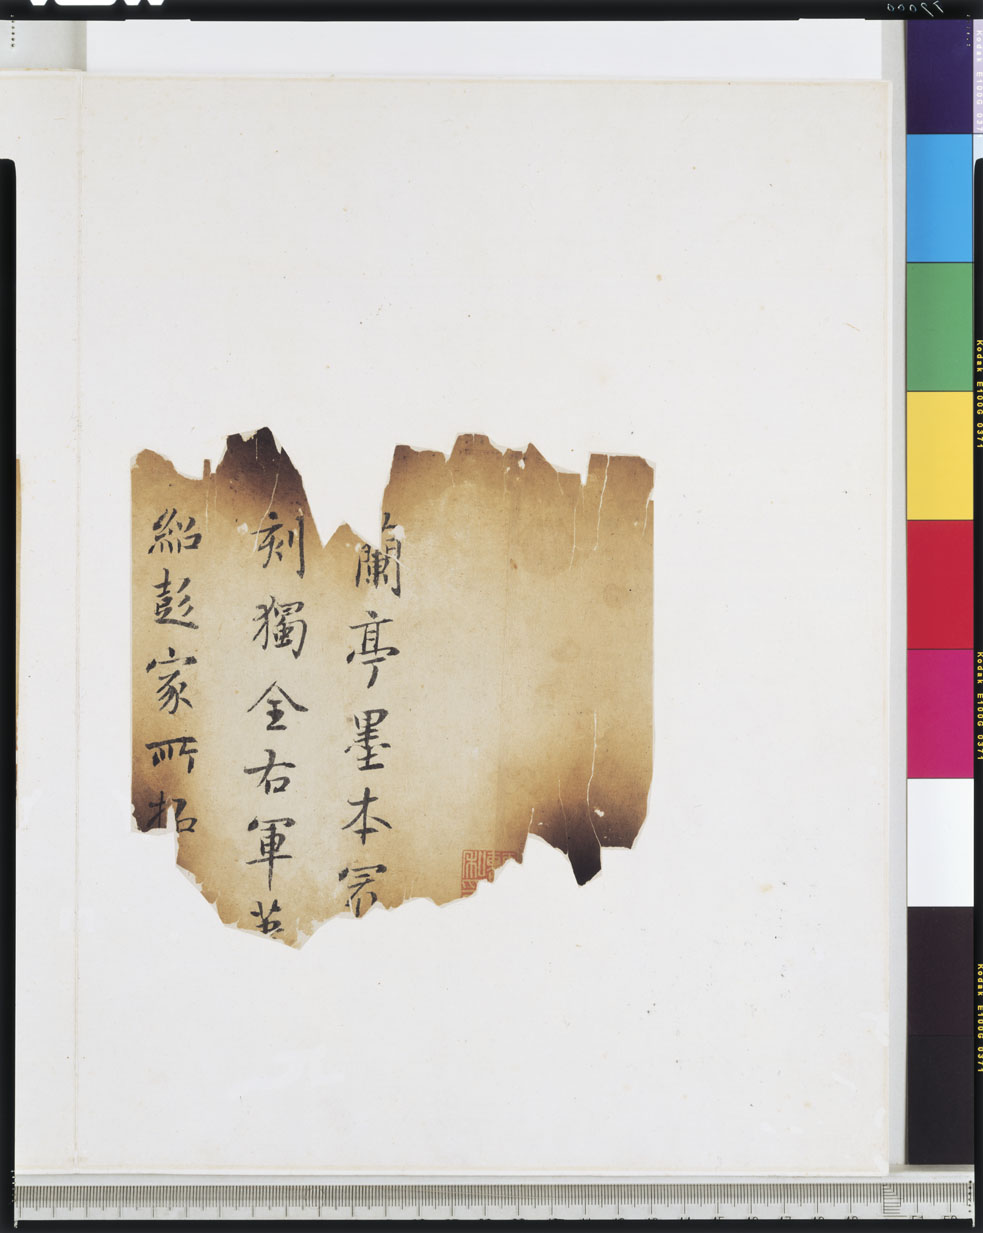 蘭亭墨本寂
刻獨全右軍英
紹彭家所拓
Kodak E100G 0371
Kodak E100G 0371
Kodak E100G 0371